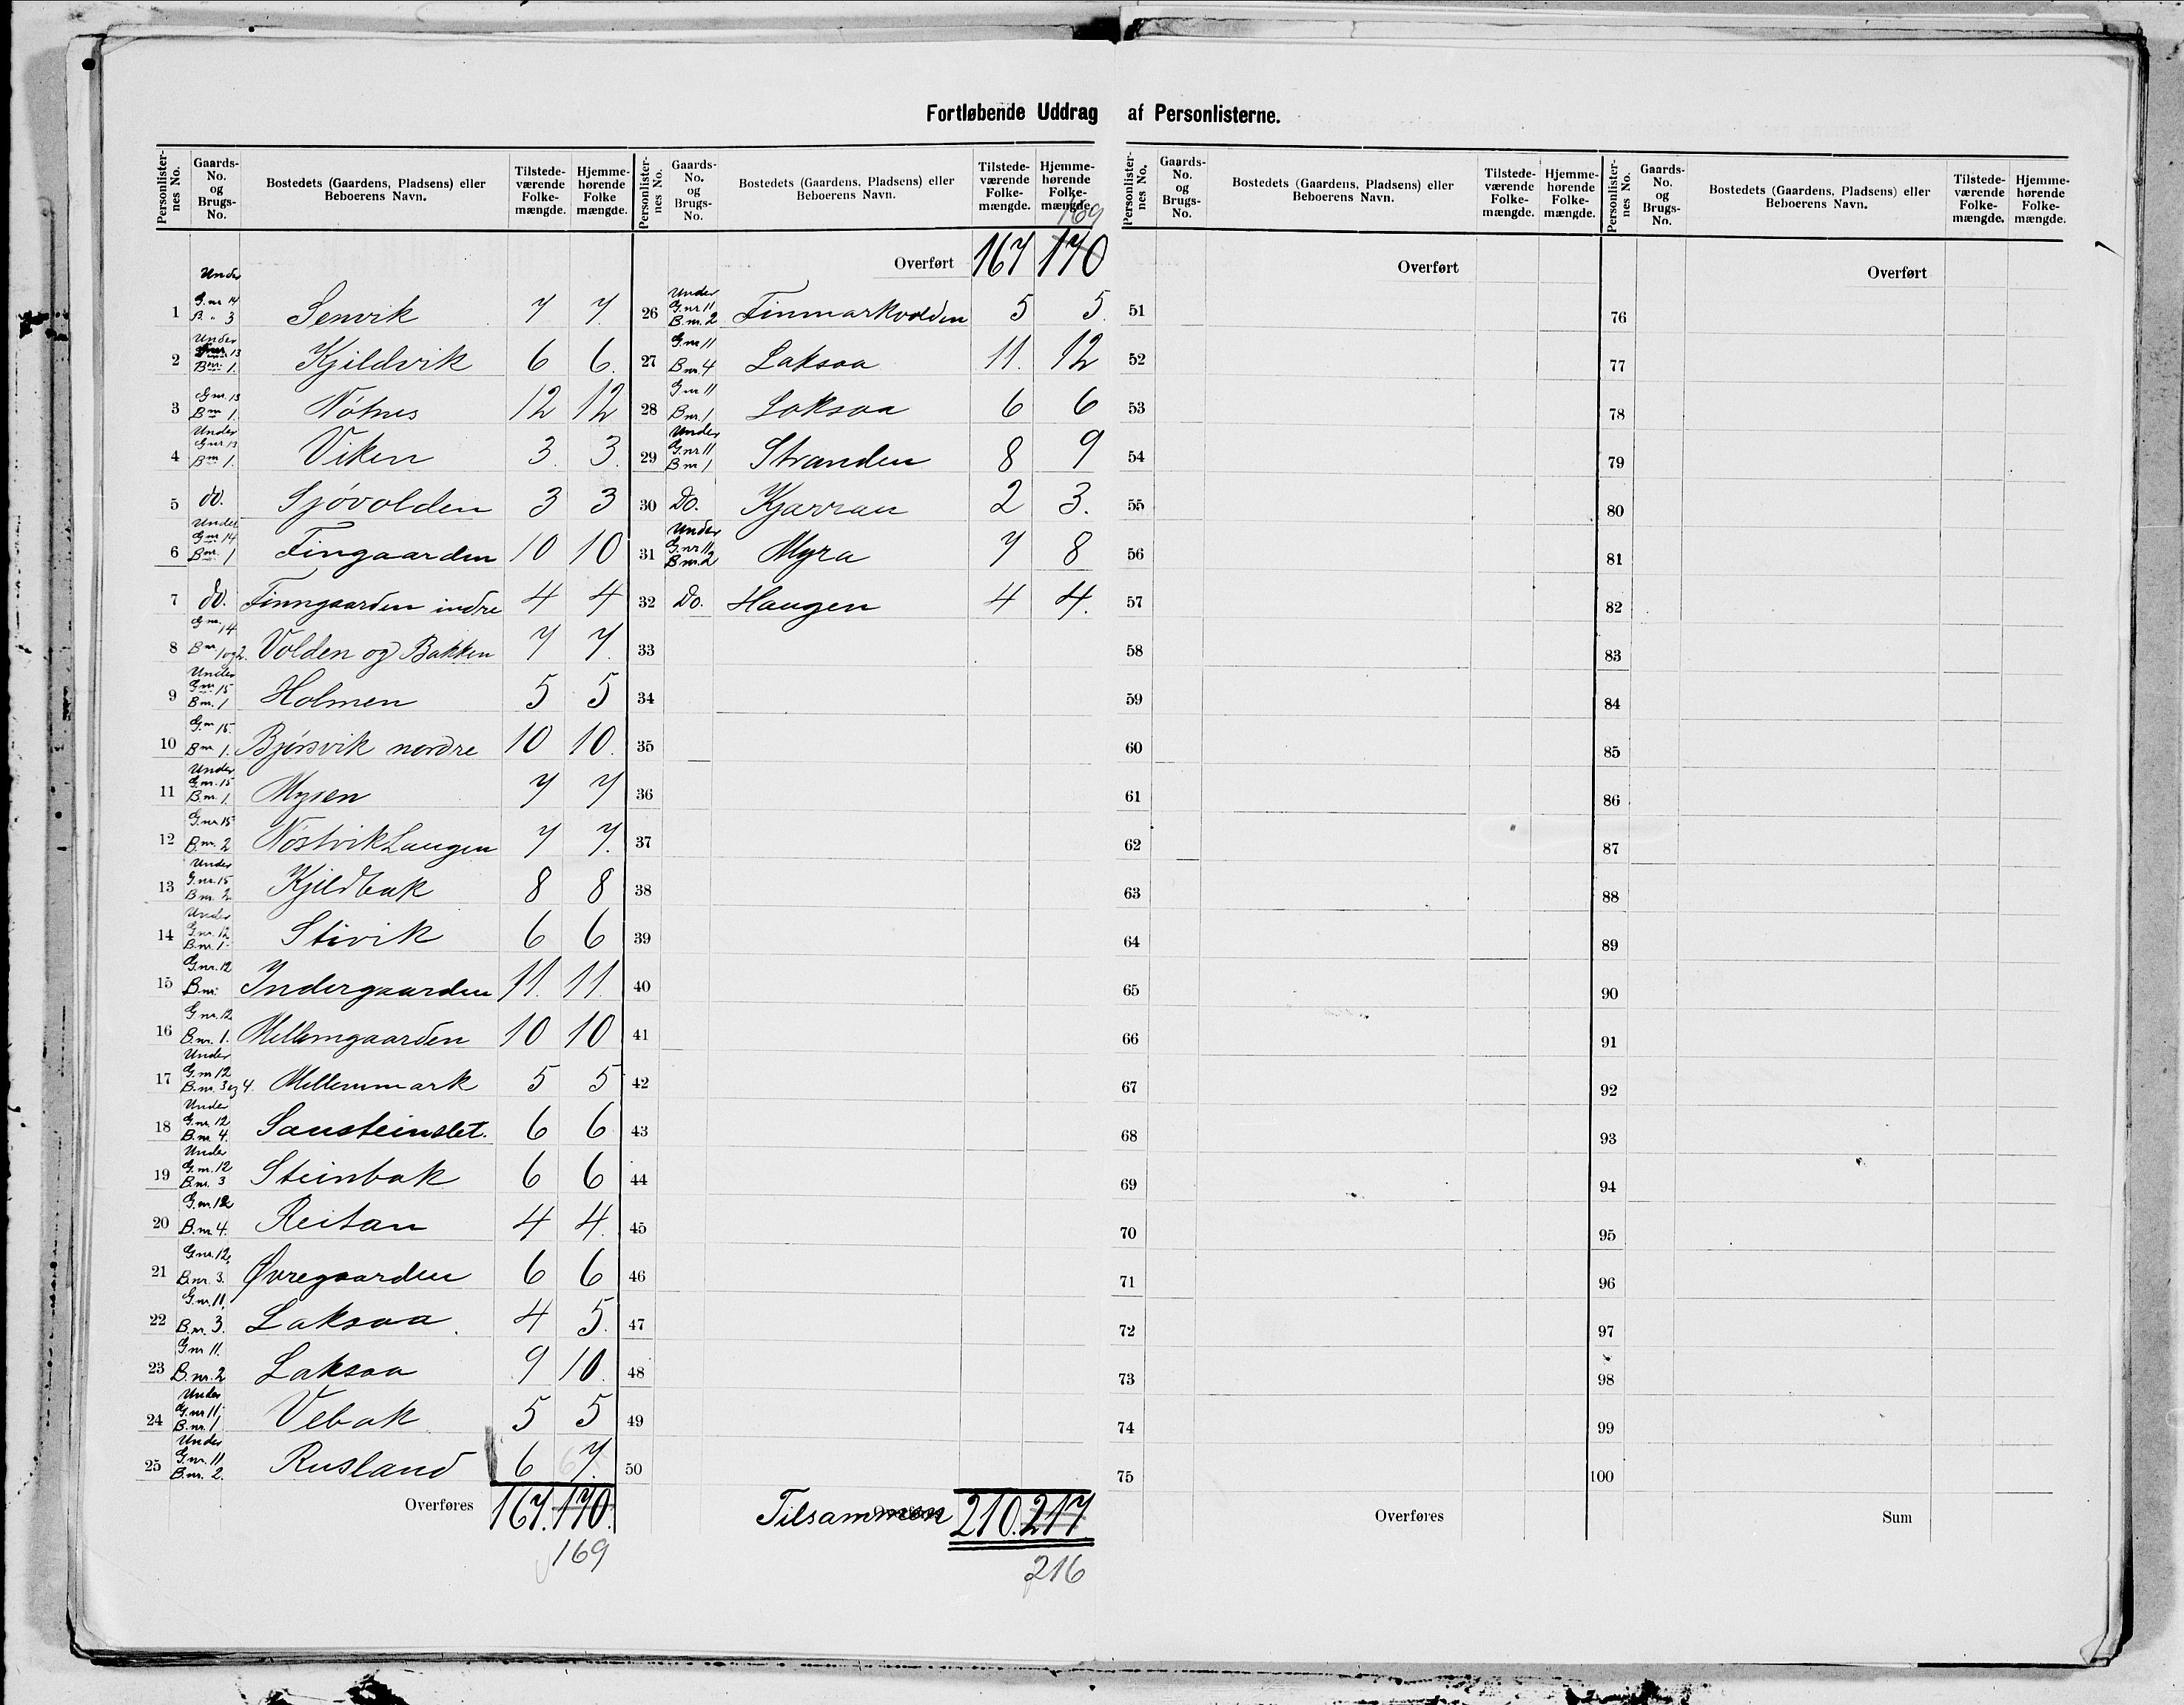 Fortløbende Uddrag af Personlisterne.
Personlister-nes No. Gaards-No. og Brugs-No. Bostedets (Gaardens, Pladsens) eller Beboerens Navn. Tilstede-værende Folke-mængde. Hjemme-hørende Folke mængde.
1 Under G.nr 14 B. " 3 Senvik 7 7.
2 Under 13 Bnr. 1. Kjildvik 6 6.
3 Gnr. 13 Bnr 1. Nötnes 12 12
4 Under Gnr 13 Bnr 1. Viken 3. 3.
5 do. Sjövolden 3 3
6 Under Gnr 14 Bnr. 1 Fingaarden 10 10
7 do. Finngaarden indre 4 4
8 Gnr. 14 Bnr 1 og 2. Volden og Bakken 7 7.
9 Under Gnr 15 Bnr. 1 Holmen 5 5
10 Gnr 15. Bnr 1. Bjørsvik nordre 10 10.
11 Under G.nr. 15 B.nr. 1. Mysen 7 7
12 G.nr. 15 B.nr. 2 Nöstvikhaugen 7 7.
13 Under G.nr. 15 B.nr. 2 Kjildbak 8 8
14 Under G.nr. 12 B.nr. 1 Stivik 6 6
15 G.nr. 12 B.nr. Indergaarden 11. 11.
16 G.nr. 12 B.nr. 1. Mellemgaarden 10 10
17 Under G.nr 12 B.nr. 3 og 4. Mellemmark 5 5
18 Under G.nr. 12 B.nr 4. Sausteinslet. 6 6
19 Under G.nr. 12 B.nr. 3 Steinbak 6 6
20 G.nr. 12 B.nr 4. Reitan 4 4.
21 G.nr. 12, B.nr. 3. Øvregaarden 6 6
22 G.nr. 11, B.nr. 3. Laksaa. 4 5.
23 G.nr 11. B.nr. 2 Laksaa 9 10.
24 Under G.nr 11 B.nr. 1 Vebak 5 5
25 Under G.nr. 11 B.nr. 2. Rusland 6 7.
Overføres 167. 170.
169
Personlister-nes No. Gaards-No. og Brugs-No. Bostedets (Gaardens, Pladsens) eller Beboerens Navn. Tilstede-værende Folke-mængde. Hjemme-hørende Folke-mængde.
169
Overført 167 170
26 Under G.nr 11 B.nr. 2 Finmarkvolden 5 5.
27 G.nr 11 B.nr. 4 Laksaa 11. 12
28 G.nr 11 B.nr. 1 Laksaa 6 6
29 Under G.nr 11 B.nr 1 Stranden 8 9
30 Do. Kjarran 2 3.
31 Under G.nr 11, B.nr. 2 Myra 7 8
32 Do. Haugen 4 4.
33
34
35
36
37
38
39
40
41
42
43
44
45
46
47
48
49
50
Tilsammen 210. 217
216
Personlister-nes No. Gaards-No. og Brugs-No. Bostedets (Gaardens, Pladsens) eller Beboerens Navn. Tilstede-værende Folke-mængde. Hjemme-hørende Folke-mængde.
Overført
51
52
53
54
55
56
57
58
59
60
61
62
63
64
65
66
67
68
69
70
71
72
73
74
75
Overføres
Personlister-nes No. Gaards-No. og Brugs-No. Bostedets (Gaardens, Pladsens) eller Beboerens Navn. Tilstede-værende Folke-mængde. Hjemme-hørende Folke-mængde.
Overført
76
77
78
79
80
81
82
83
84
85
86
87
88
89
90
91
92
93
94
95
96
97
98
99
100
Sum